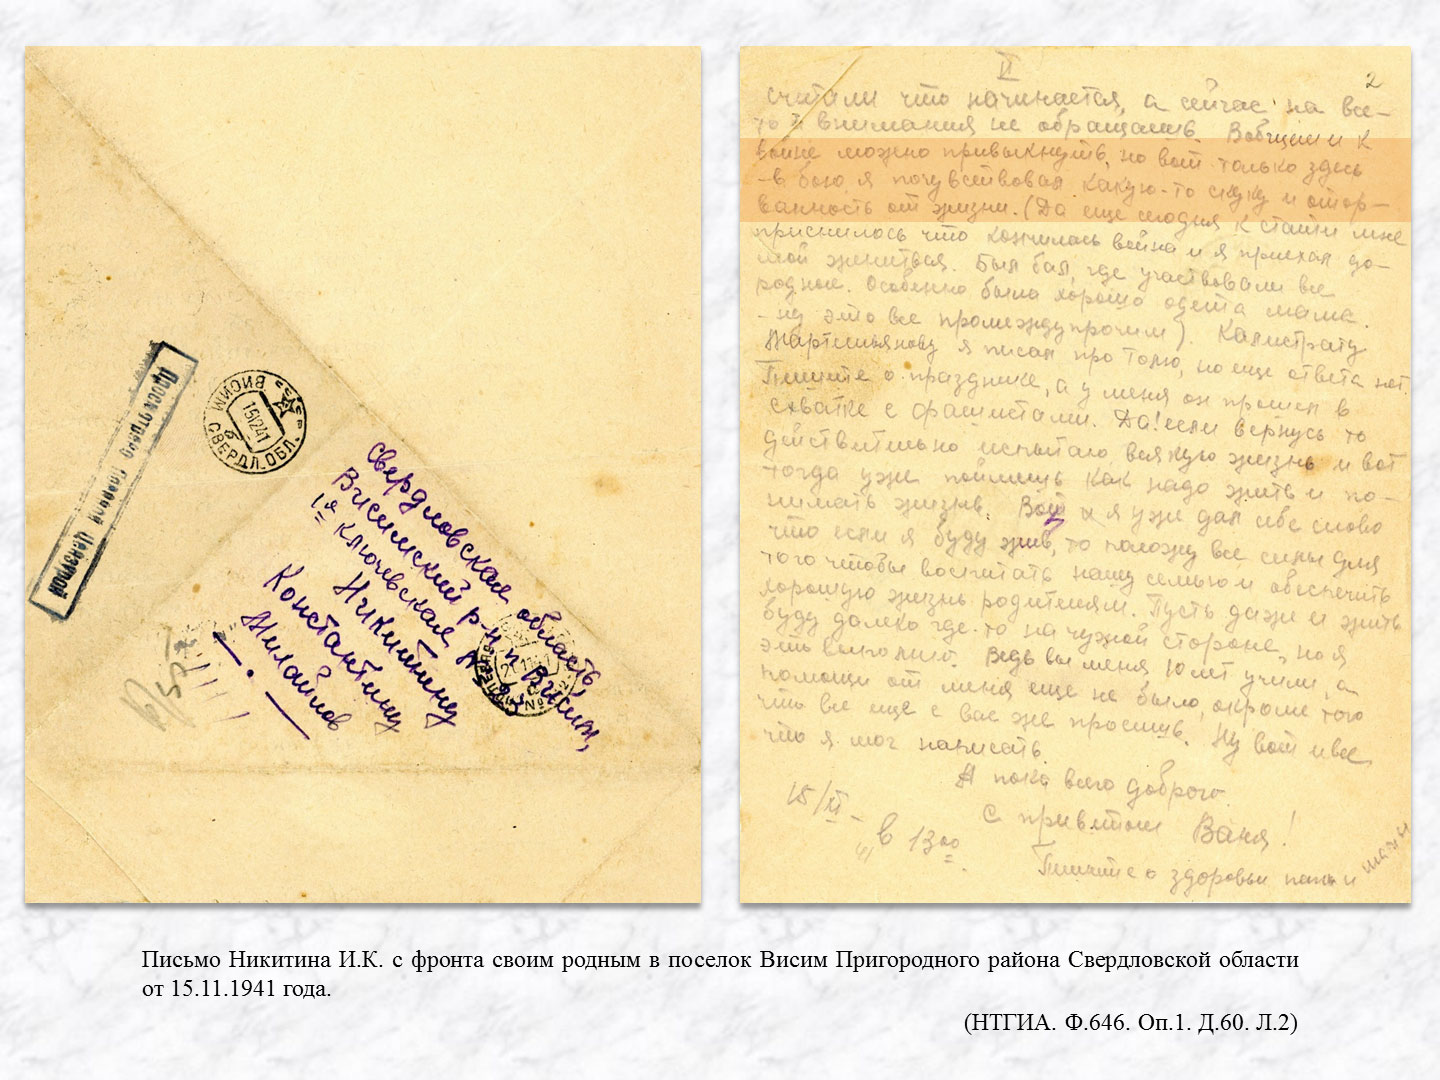 Просмотрено Военной Цензурой
ВИСИМ СВЕРДЛ. ОБЛ.
Свердловская область,
Висимский р-н п Висим,
1я Ключевская № 23
Никитину
Константину
2
II
считали что начинается, а сейчас на все-
то и внимания не обращаешь. Вобщем и к
войне можно привыкнуть, но вот только здесь
в бою я почувствовал какую-то скуку и отор-
ванность от жизни. (Да еще сегодня к стати мне
приснилось что кончилась война и я приехал до-
мой. Был бал, где участвовали все
родные. Особенно была хорошо одета мама.
ну это все промеждупрочим). Калистрату
Мартемьянову я писал про Толю, но еще ответа нет.
Пишите о празднике, а у меня он прошел в
схватке с фашистами. Да! если вернусь то
действительно испытаю всякую жизнь и вот
тогда уже поймешь как надо жить и по-
нимать жизнь. Вот и я уже дал себе слово
что если я буду жив, то положу все силы для
того чтобы воспитать нашу семью и обеспечить
хорошую жизнь родителям. Пусть даже и жить
буду далеко где то на чужой стороне, но я
это выполню. Ведь вы меня 10 лет учили, а
помощи от меня еще не было, окроме того
что все еще с вас же просишь. Ну вот и все
что я мог написать.
А пока всего доброго.
С приветом Ваня!
15/XI - 41
в 13 00
Пишите о здоровьи папы и мамы
Письмо Никитина И.К. с фронта своим родным в поселок Висим Пригородного района Свердловской области
от 15.11.1941 года.
(НТГИА. Ф.646. Оп.1. Д.60. Л.2)